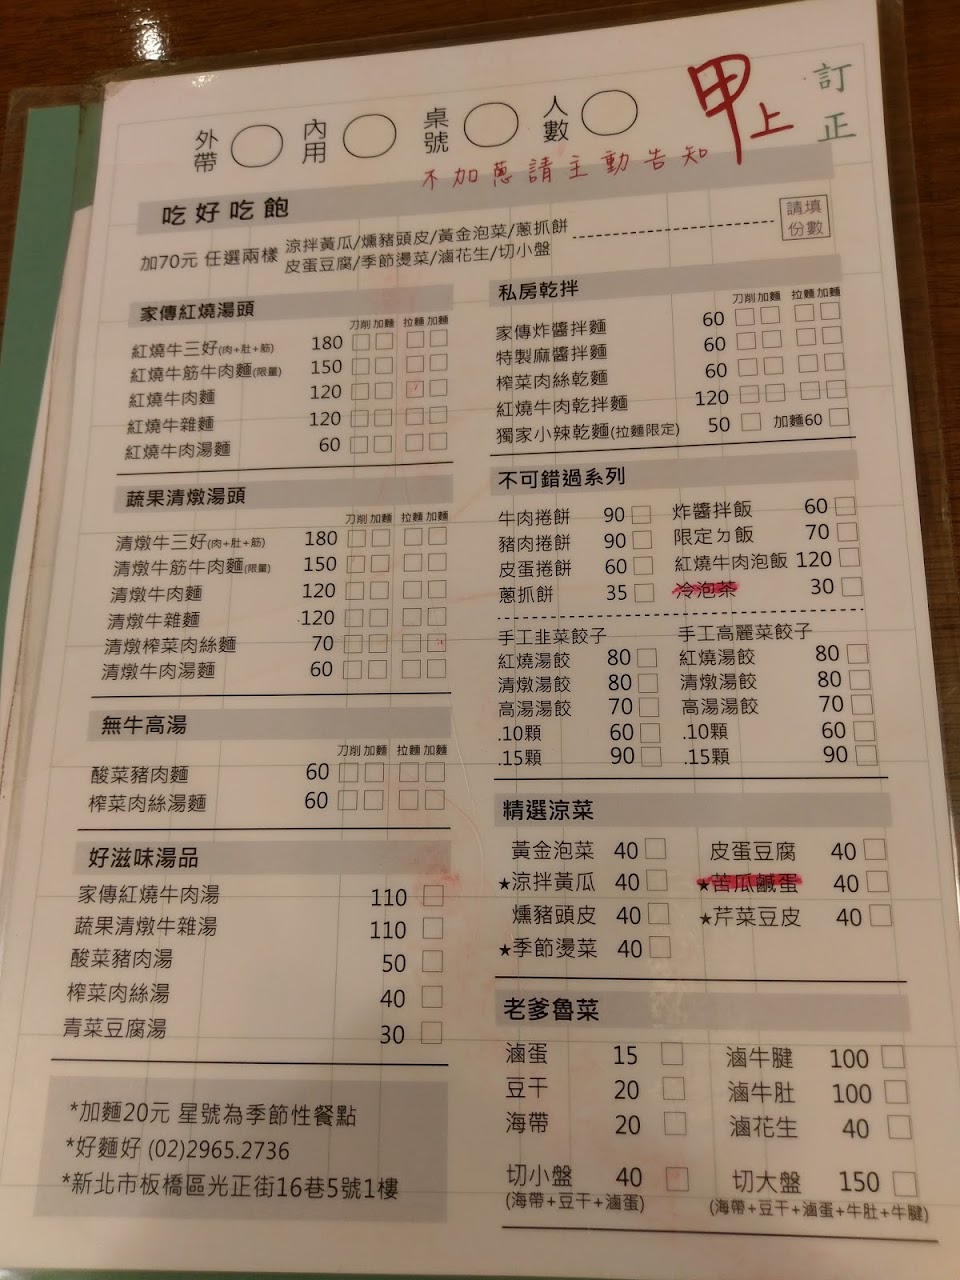 外帶 內用 桌號 人數
甲上
訂正
不加蔥請主動告知
吃好吃飽
加70元 任選兩樣
涼拌黃瓜/燻豬頭皮/黃金泡菜/蔥抓餅
皮蛋豆腐/季節燙菜/滷花生/切小盤
請填份數
家傳紅燒湯頭
刀削 加麵 拉麵 加麵
紅燒牛三好(肉+肚+筋) 180
紅燒牛筋牛肉麵(限量) 150
紅燒牛肉麵 120
紅燒牛雜麵 120
紅燒牛肉湯麵 60
蔬果清燉湯頭
刀削 加麵 拉麵 加麵
清燉牛三好(肉+肚+筋) 180
清燉牛筋牛肉麵(限量) 150
清燉牛肉麵 120
清燉牛雜麵 120
清燉榨菜肉絲麵 70
清燉牛肉湯麵 60
無牛高湯
刀削 加麵 拉麵 加麵
酸菜豬肉麵 60
榨菜肉絲湯麵 60
好滋味湯品
家傳紅燒牛肉湯 110
蔬果清燉牛雜湯 110
酸菜豬肉湯 50
榨菜肉絲湯 40
青菜豆腐湯 30
*加麵20元 星號為季節性餐點
*好麵好 (02)2965.2736
*新北市板橋區光正街16巷5號1樓
私房乾拌
刀削 加麵 拉麵 加麵
家傳炸醬拌麵 60
特製麻醬拌麵 60
榨菜肉絲乾麵 60
紅燒牛肉乾拌麵 120
獨家小辣乾麵(拉麵限定) 50 加麵60
不可錯過系列
牛肉捲餅 90 炸醬拌飯 60
豬肉捲餅 90 限定ㄉ飯 70
皮蛋捲餅 60 紅燒牛肉泡飯 120
蔥抓餅 35 冷泡茶 30
手工韭菜餃子 手工高麗菜餃子
紅燒湯餃 80 紅燒湯餃 80
清燉湯餃 80 清燉湯餃 80
高湯湯餃 70 高湯湯餃 70
.10顆 60 .10顆 60
.15顆 90 .15顆 90
精選涼菜
黃金泡菜 40 皮蛋豆腐 40
★涼拌黃瓜 40 ★苦瓜鹹蛋 40
燻豬頭皮 40 ★芹菜豆皮 40
★季節燙菜 40
老爹魯菜
滷蛋 15 滷牛腱 100
豆干 20 滷牛肚 100
海帶 20 滷花生 40
切小盤 40 切大盤 150
(海帶+豆干+滷蛋) (海帶+豆干+滷蛋+牛肚+牛腱)